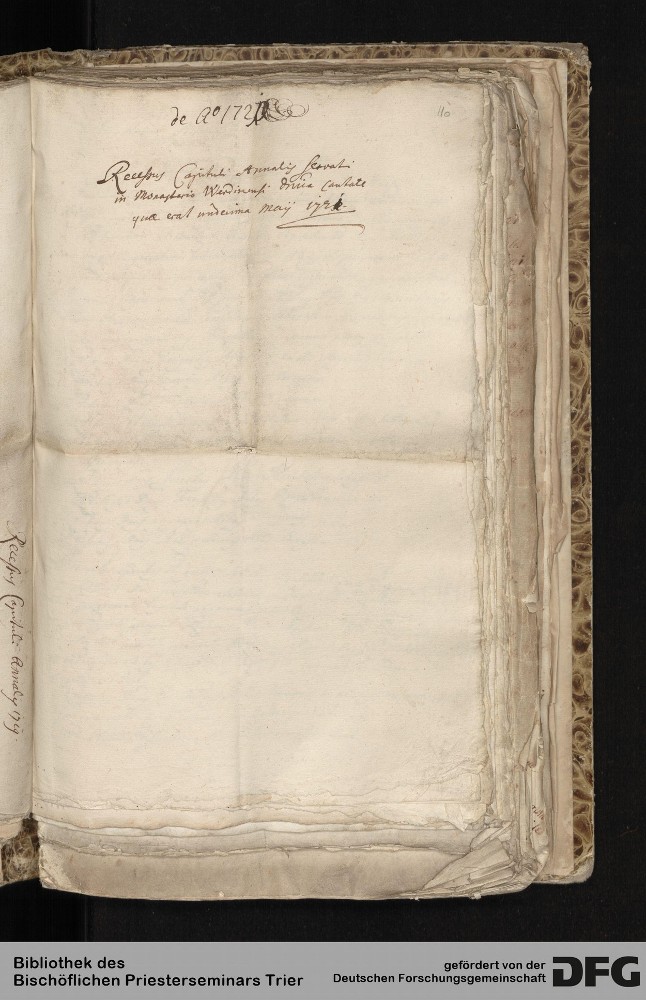 de Aº 1721
110
Recessus Capituli Annalis servati
in Monasterio Werdinensi Dnica Cantate
quæ erat undecima Maij 1721
Recessus Capituli Annalis 1719.
Bibliothek des
Bischöflichen Priesterseminars Trier
gefördert von der
Deutschen Forschungsgemeinschaft
DFG